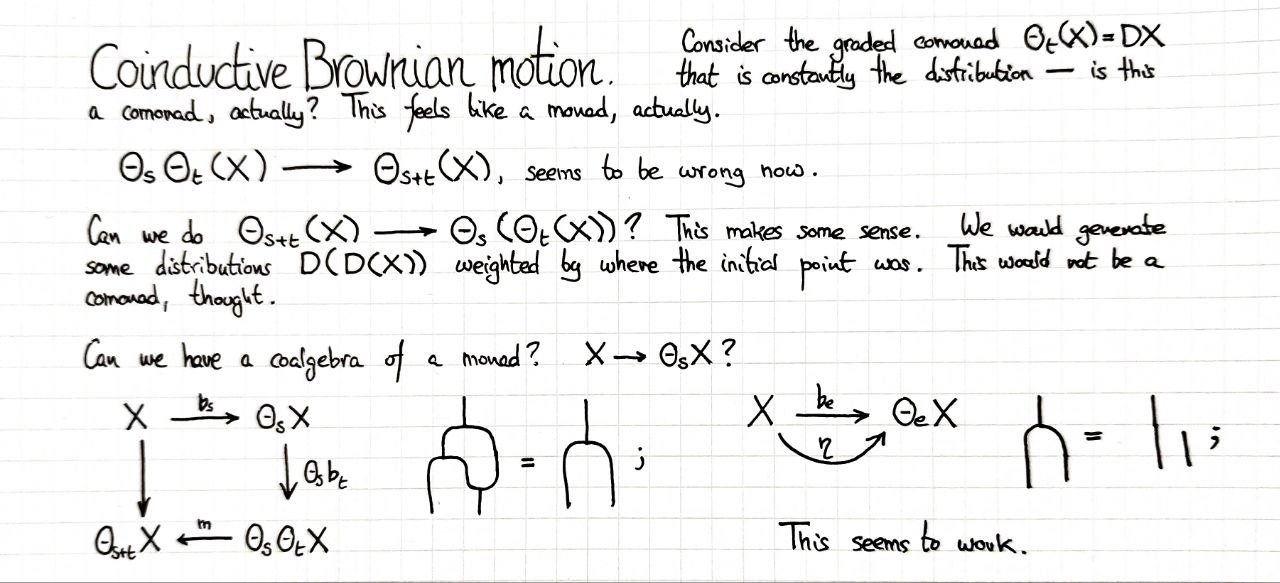 Coinductive Brownian motion. Consider the graded comonad Θₜ(X)=DX
that is constantly the distribution — is this
a comonad, actually? This feels like a monad, actually.
ΘₛΘₜ(X) ⟶ Θₛ₊ₜ(X), seems to be wrong now.
Can we do Θₛ₊ₜ(X) ⟶ Θₛ(Θₜ(X))? This makes some sense. We would generate
some distributions D(D(X)) weighted by where the initial point was. This would not be a
comonad, thought.
Can we have a coalgebra of a monad? X → ΘₛX?
X bₛ→ ΘₛX
↓ ↓ Θₛbₜ
Θₛ₊ₜX ←m ΘₛΘₜX
= ;
X bₑ→ ΘₑX
η
= ;
This seems to work.